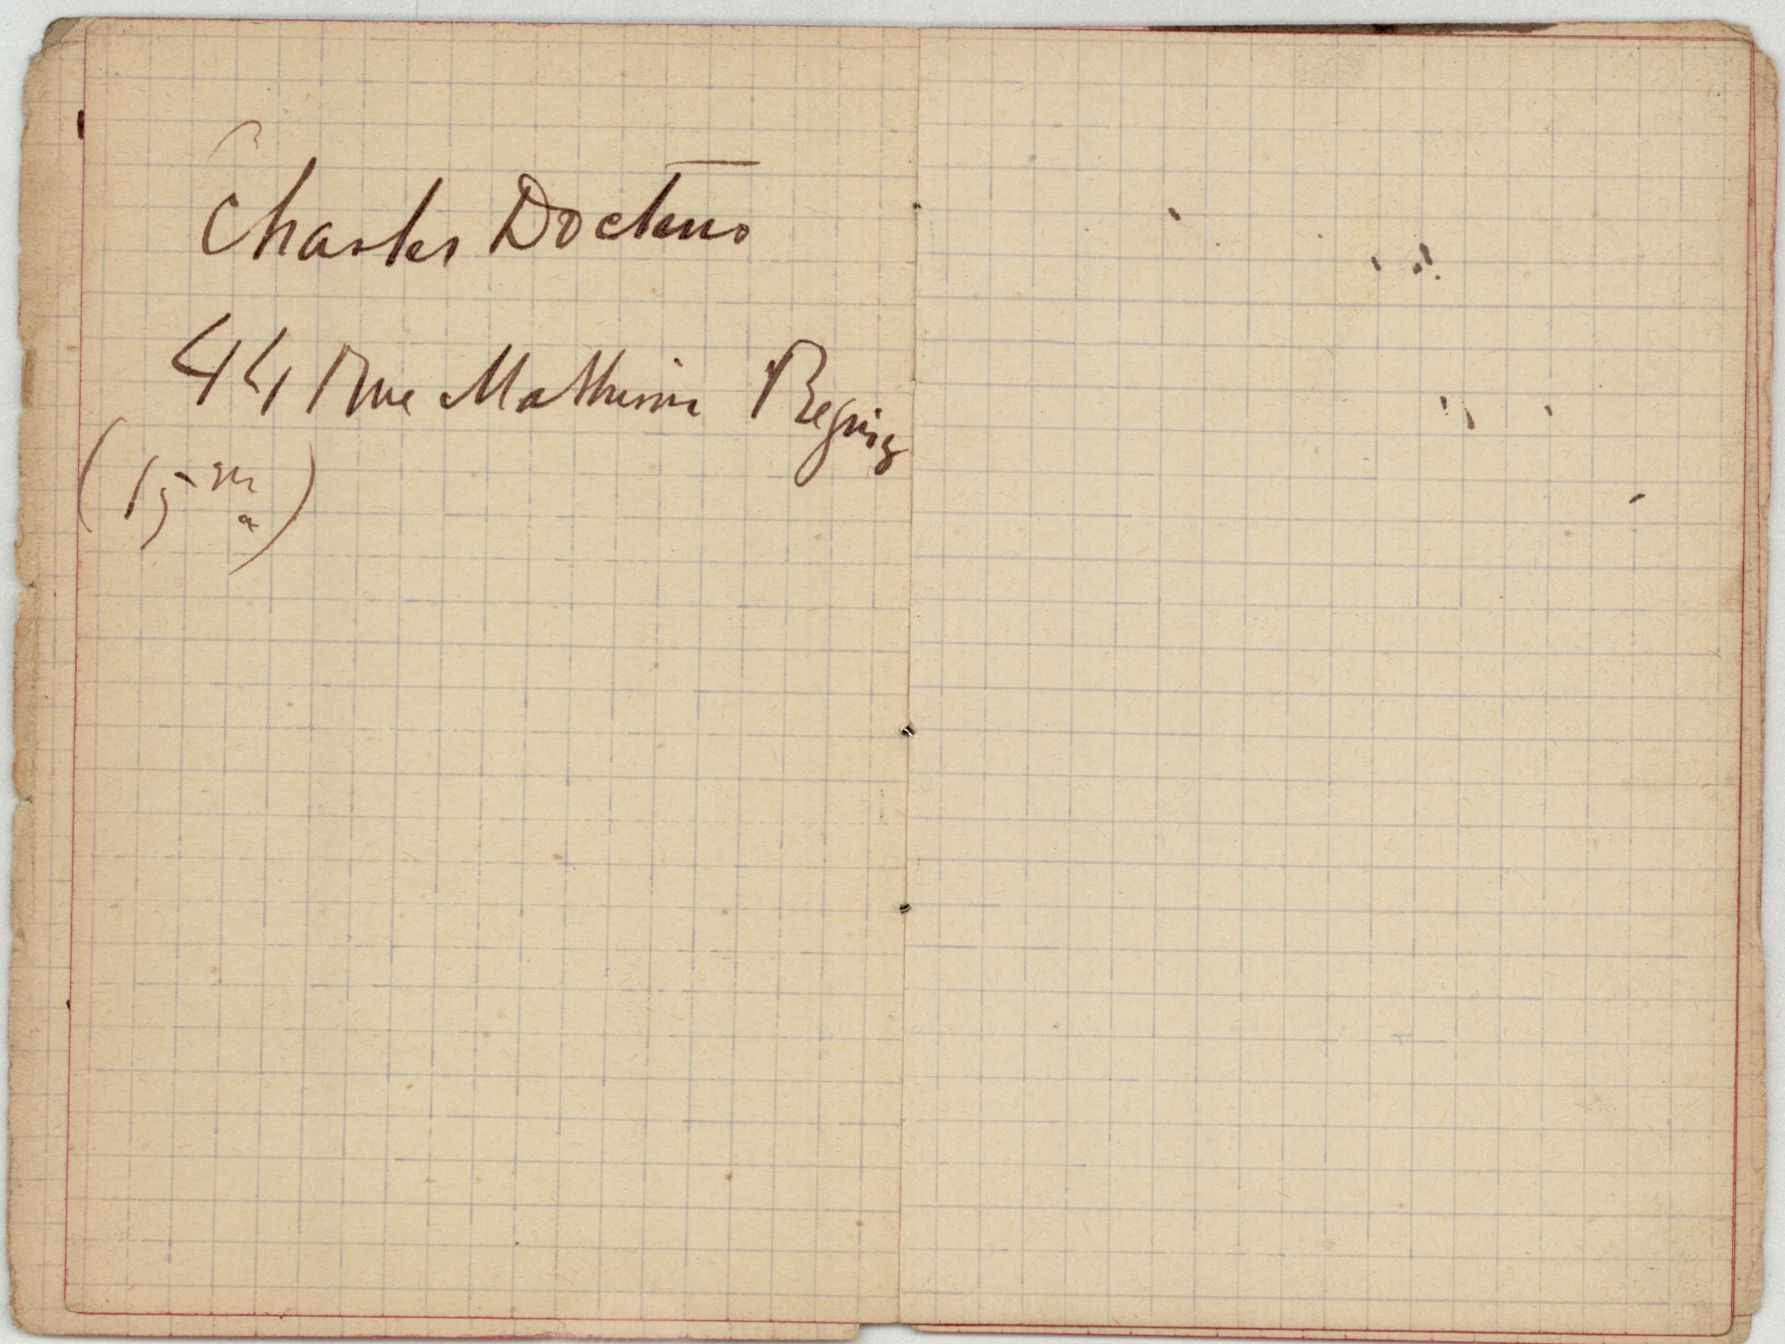 Charles Docteur
44 Rue Mathurin Regnier
(15 m a)